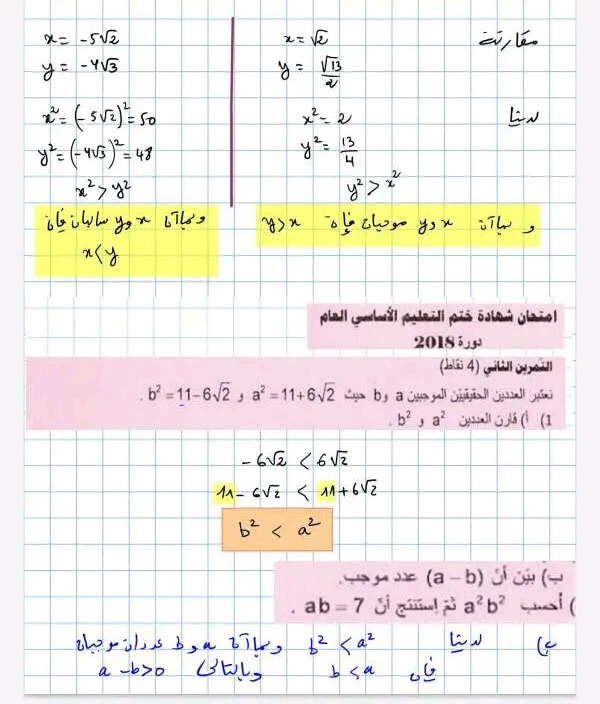 مقارنة
x = √2
y = √13/2
لدينا
x² = 2
y² = 13/4
y² > x²
و بما أن x و y موجبان فإن y > x
x = -5√2
y = -4√3
x² = (-5√2)² = 50
y² = (-4√3)² = 48
x² > y²
وبما أن x و y سالبان فإن
x < y
امتحان شهادة ختم التعليم الأساسي العام
دورة 2018
التمرين الثاني (4 نقاط)
نعتبر العددين الحقيقيّين الموجبين a و b حيث a² = 11+6√2 و b² = 11-6√2 .
1) أ) قارن العددين a² و b² .
-6√2 < 6√2
11 - 6√2 < 11 + 6√2
b² < a²
ب) بيّن أنّ (a – b) عدد موجب.
) أحسب a²b² ثمّ إستنتج أنّ ab = 7 .
ب) لدينا b² < a² وبما أن a و b عددان موجبان
فإن b < a وبالتالي a - b > 0